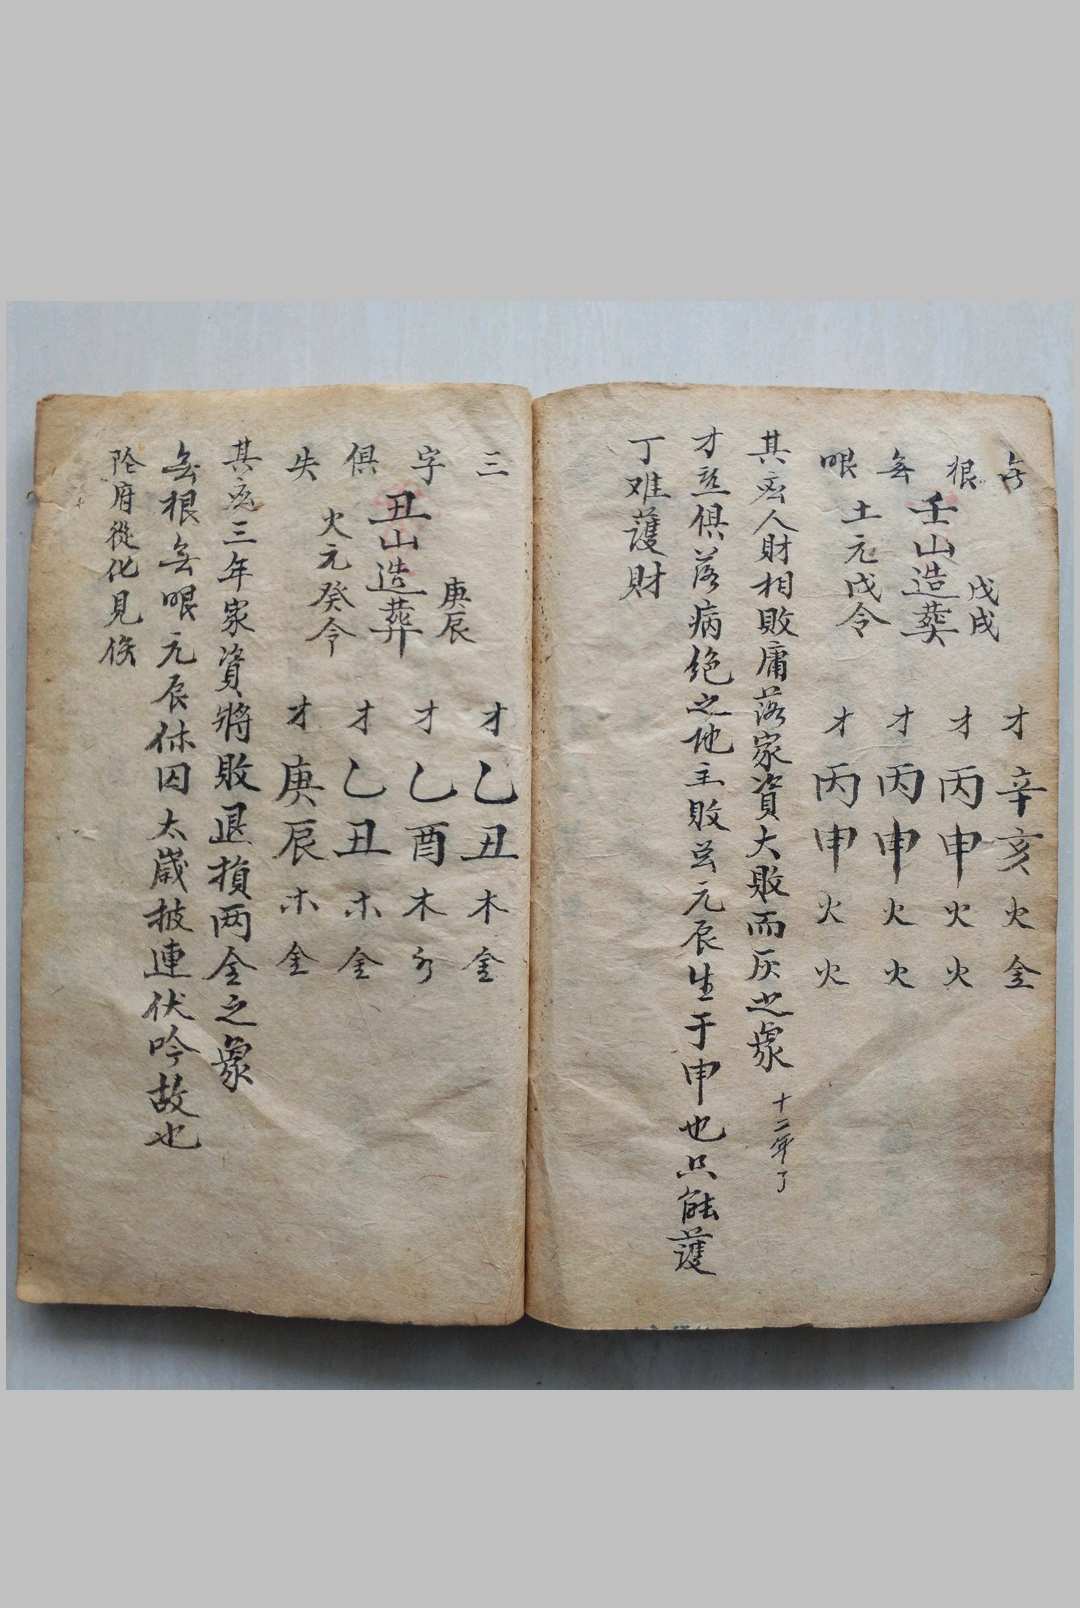 无根无眼
戊戌
壬山造葬
土元戊令
才辛亥火金
才丙申火火
才丙申火火
才丙申火火
其家人財相敗庸落家資大敗而灰之象
十二年了
才並俱落病绝之地主敗並元辰生于申也只能護
丁难護財
三字俱失
庚辰
丑山造葬
火元癸令
才乙丑木金
才乙酉木水
才乙丑木金
才庚辰木金
其家三年家資將敗退損两全之象
無根無眼元辰休囚太歲披連伏吟故也
陰府從化見後